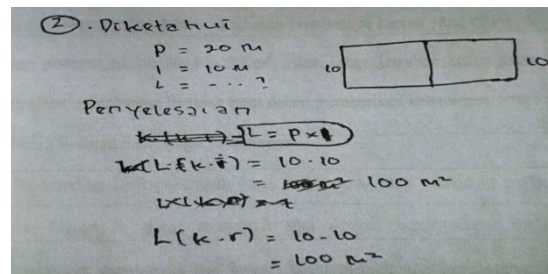 2. Diketahui
P = 20 m
l = 10 m
L = - - - ?
10
10
Penyelesaian
L = P × l
L (k. i) = 10 . 10
= 100 m²
L (k . r) = 10 - 10
= 100 m²